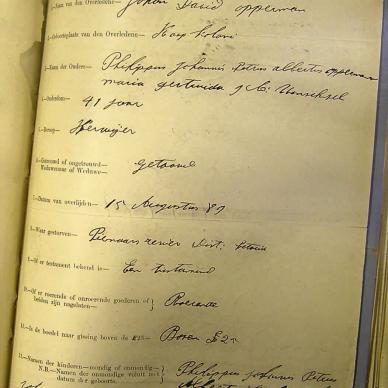 1.—Naam van den Overledene— Johan David Opperman
2.—Geboorteplaats van den Overledene— Kaap Kolonie
3.—Naam der Ouders— Philippus Johannis Petrus Albertus Opperman
maria gertruida J C
4.—Ouderdom— 41 jaar
5.—Beroep—
6.—Getrouwd of ongetrouwd—
Weduwenaar of Weduwe—
getrouwd
7.—Datum van overlijden— 15 Augustus
8.—Waar gestorven— Pienaars rivier Dist.
9.—Of er testament bekend is— Een testament
10.—Of er roerende of onroerende goederen of
beiden zijn nagelaten— Roerende
11.—Is de boedel naar gissing boven de £15— Boven £
12.—Namen der kinderen—mondig of onmondig—
N.B.—Namen der onmondige voluit met
datum der geboorte.
Philippus Johannis Petrus